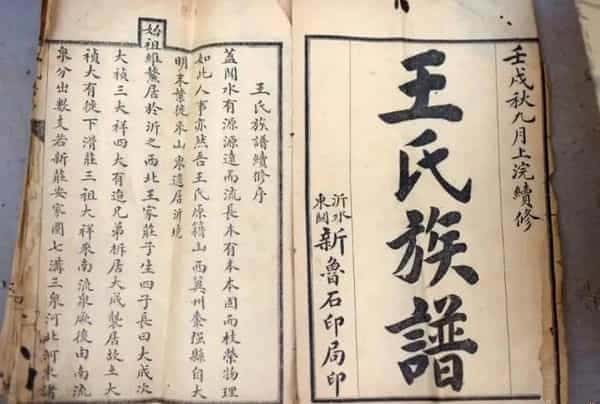 壬戌秋九月上浣續修
王氏族譜
沂水東關
新魯石印局印
王氏族譜續修序
蓋聞水有源源遠而流長木有本本固而枝榮物理
如此人事亦然吾王氏原籍山西冀州棗强縣自大
明末葉徙來山東遷居沂境
始祖維鰲居於沂之西北王家莊子生四子長曰大成次
大禎三大祥四大有迨兄弟柝居大成襲居故土大
禎大有徙下滑莊三祖大祥來南流泉厥後由南流
泉分出數支若新莊安家圈七溝三泉河北河東諸